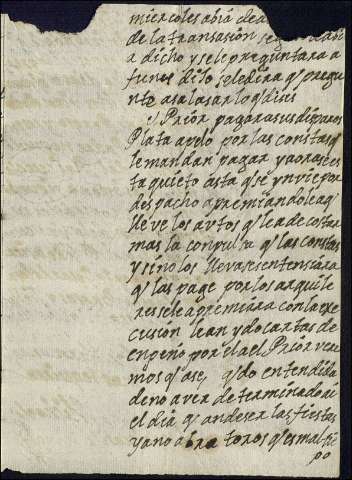 miercoles abrá dean
de la transasión se
a dicho y se le preguntara a
funes dilo se le dira q̃ pregu
nte a salasar lo q̃ dixe
el Prior pagara sus dineros
Plata a pelo por las constas q̃
le mandan pagar y aora se es
ta quieto asta q̃ se ynvie por
despacho apremiandole a q̃
lleve los avtos q̃ le a de costar
mas la conpulsa q̃ las constas
y si no los lleva se sentensiara
q̃ las page por los arquile
res se le apremiara con la exe
cusion lean ydo cartas de
enpeño por el al Prior vere
mos q̃ ase, q̃do entendida
de no aver determinado ni
el dia q̃ an de ser las fiestas
ya no abra toros q̃ es mal tie
po